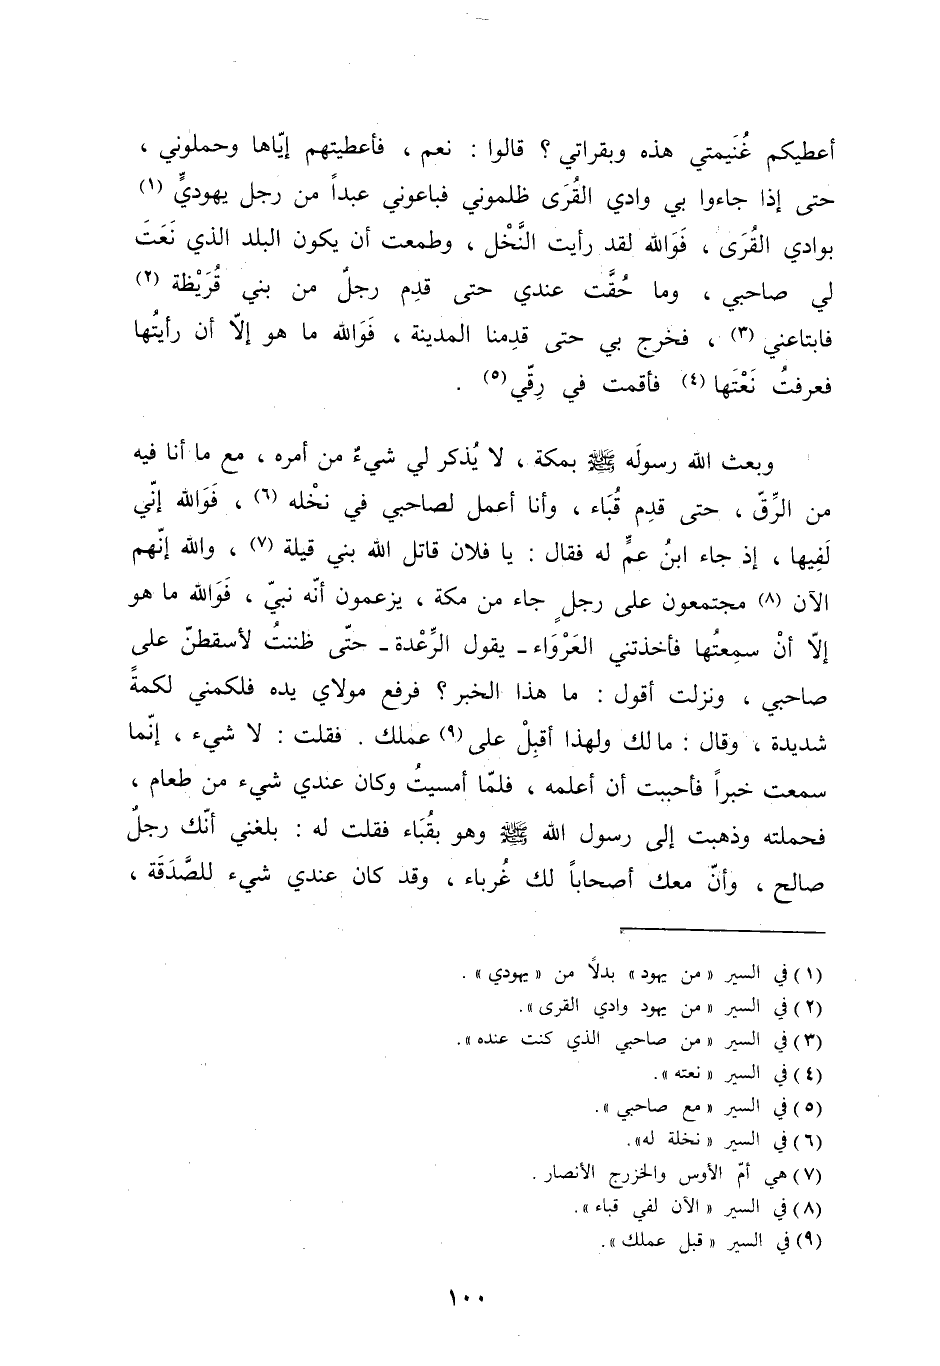 أعطيكم غُنَيمتي هذه وبقراتي ؟ قالوا : نعم ، فأعطيتهم إيّاها وحملوني ،
حتى إذا جاءوا بي وادي القُرَى ظلموني فباعوني عبداً من رجل يهوديٍّ (١)
بوادي القُرَى ، فَوَالله لقد رأيت النَّخْل ، وطمعت أن يكون البلد الذي نَعَتَ
لي صاحبي ، وما حُقَّت عندي حتى قدِم رجلٌ من بني قُرَيْظة (٢)
فابتاعني (٣) ، فخرج بي حتى قدِمنا المدينة ، فَوَالله ما هو إلّا أن رأيتُها
فعرفتُ نَعْتَها (٤) فأقمت في رِقّي (٥) .
وبعث الله رسولَه ﷺ بمكة ، لا يُذكر لي شيءٌ من أمره ، مع ما أنا فيه
من الرِّقّ ، حتى قدِم قُبَاء ، وأنا أعمل لصاحبي في نخْله (٦) ، فَوَالله إنّي
لَفِيها ، إذ جاء ابنُ عمٍّ له فقال : يا فلان قاتل الله بني قيلة (٧) ، والله إنّهم
الآن (٨) مجتمعون على رجلٍ جاء من مكة ، يزعمون أنّه نبيّ ، فَوَالله ما هو
إلّا أنْ سمِعتُها فأخذتني العَرْوَاء ـ يقول الرِّعْدة ـ حتّى ظننتُ لأسقطنّ على
صاحبي ، ونزلت أقول : ما هذا الخبر ؟ فرفع مولاي يده فلكمني لكمةً
شديدة ، وقال : مالك ولهذا أقبِلْ على (٩) عملك . فقلت : لا شيء ، إنّما
سمعت خبراً فأحببت أن أعلمه ، فلمّا أمسيتُ وكان عندي شيء من طعام ،
فحملته وذهبت إلى رسول الله ﷺ وهو بقُبَاء فقلت له : بلغني أنّك رجلٌ
صالح ، وأنّ معك أصحاباً لك غُرباء ، وقد كان عندي شيء للصَّدَقَة ،
(١) في السير « من يهود » بدلاً من « يهودي » .
(٢) في السير « من يهود وادي القرى » .
(٣) في السير « من صاحبي الذي كنت عنده » .
(٤) في السير « نعته » .
(٥) في السير « مع صاحبي » .
(٦) في السير « نخلة له» .
(٧) هي أمّ الأوس والخزرج الأنصار .
(٨) في السير « الآن لفي قباء » .
(٩) في السير « قبل عملك » .
١٠٠